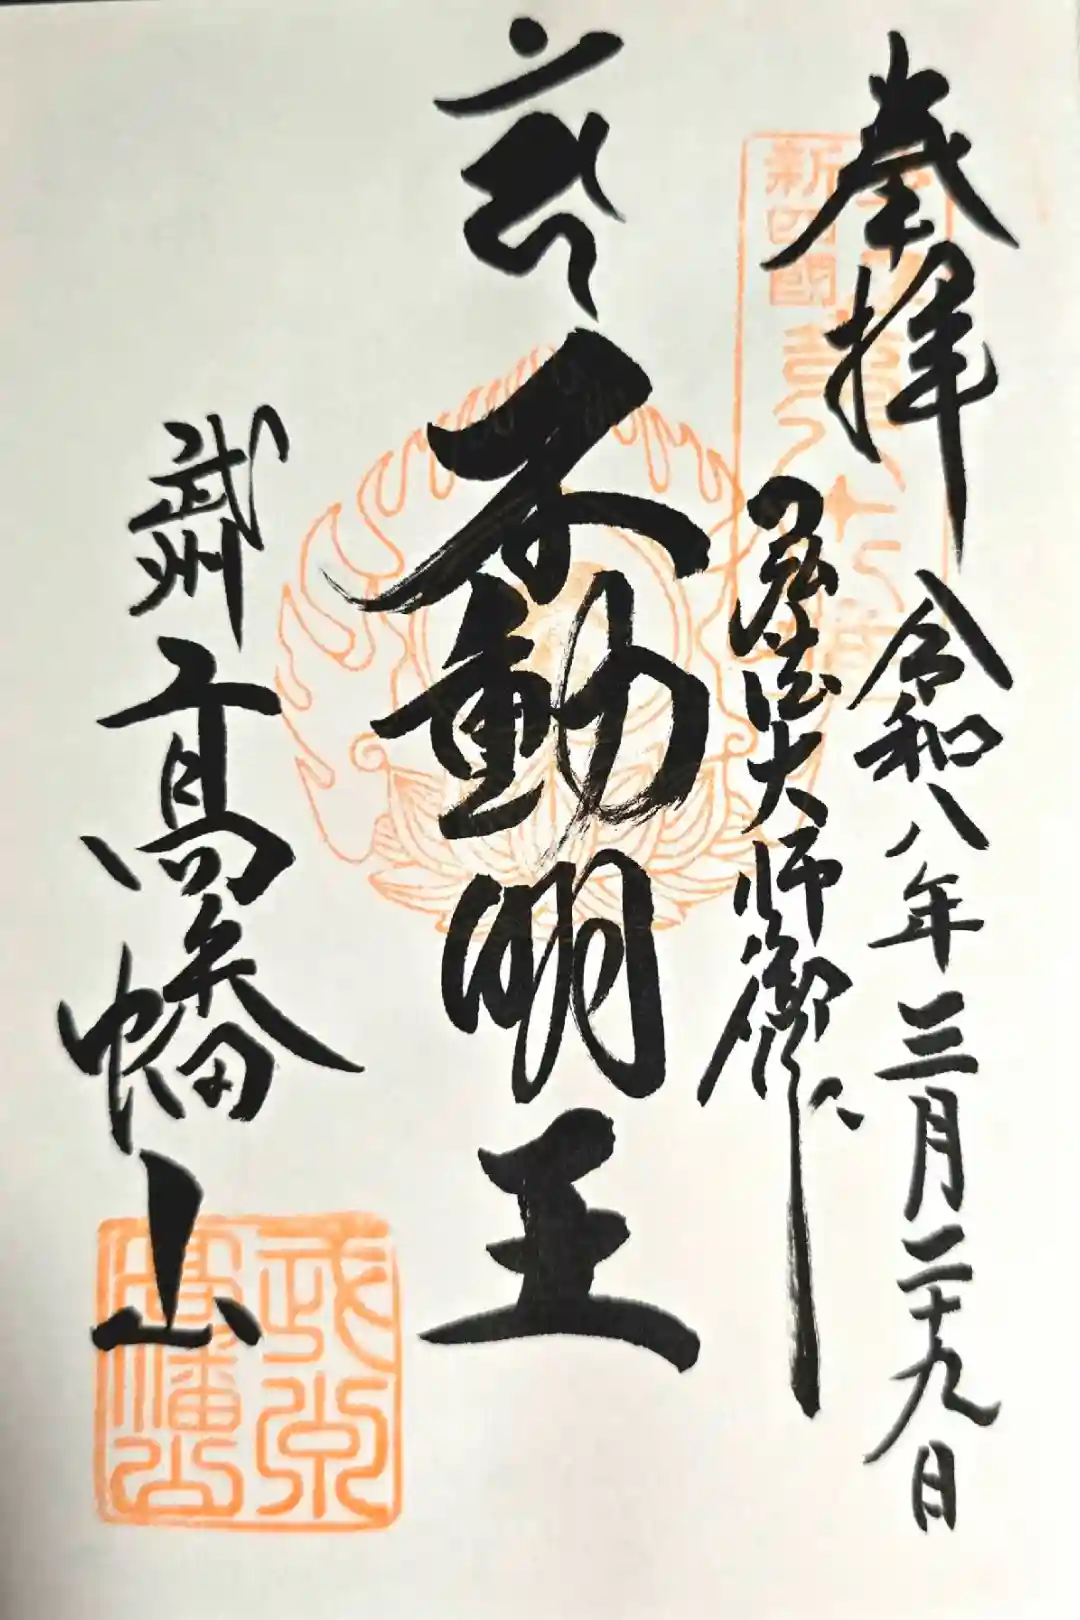 奉拝
令和八年三月二十九日
弘法大師御作
不動明王
武州
高幡山
新四国
武州
高幡山